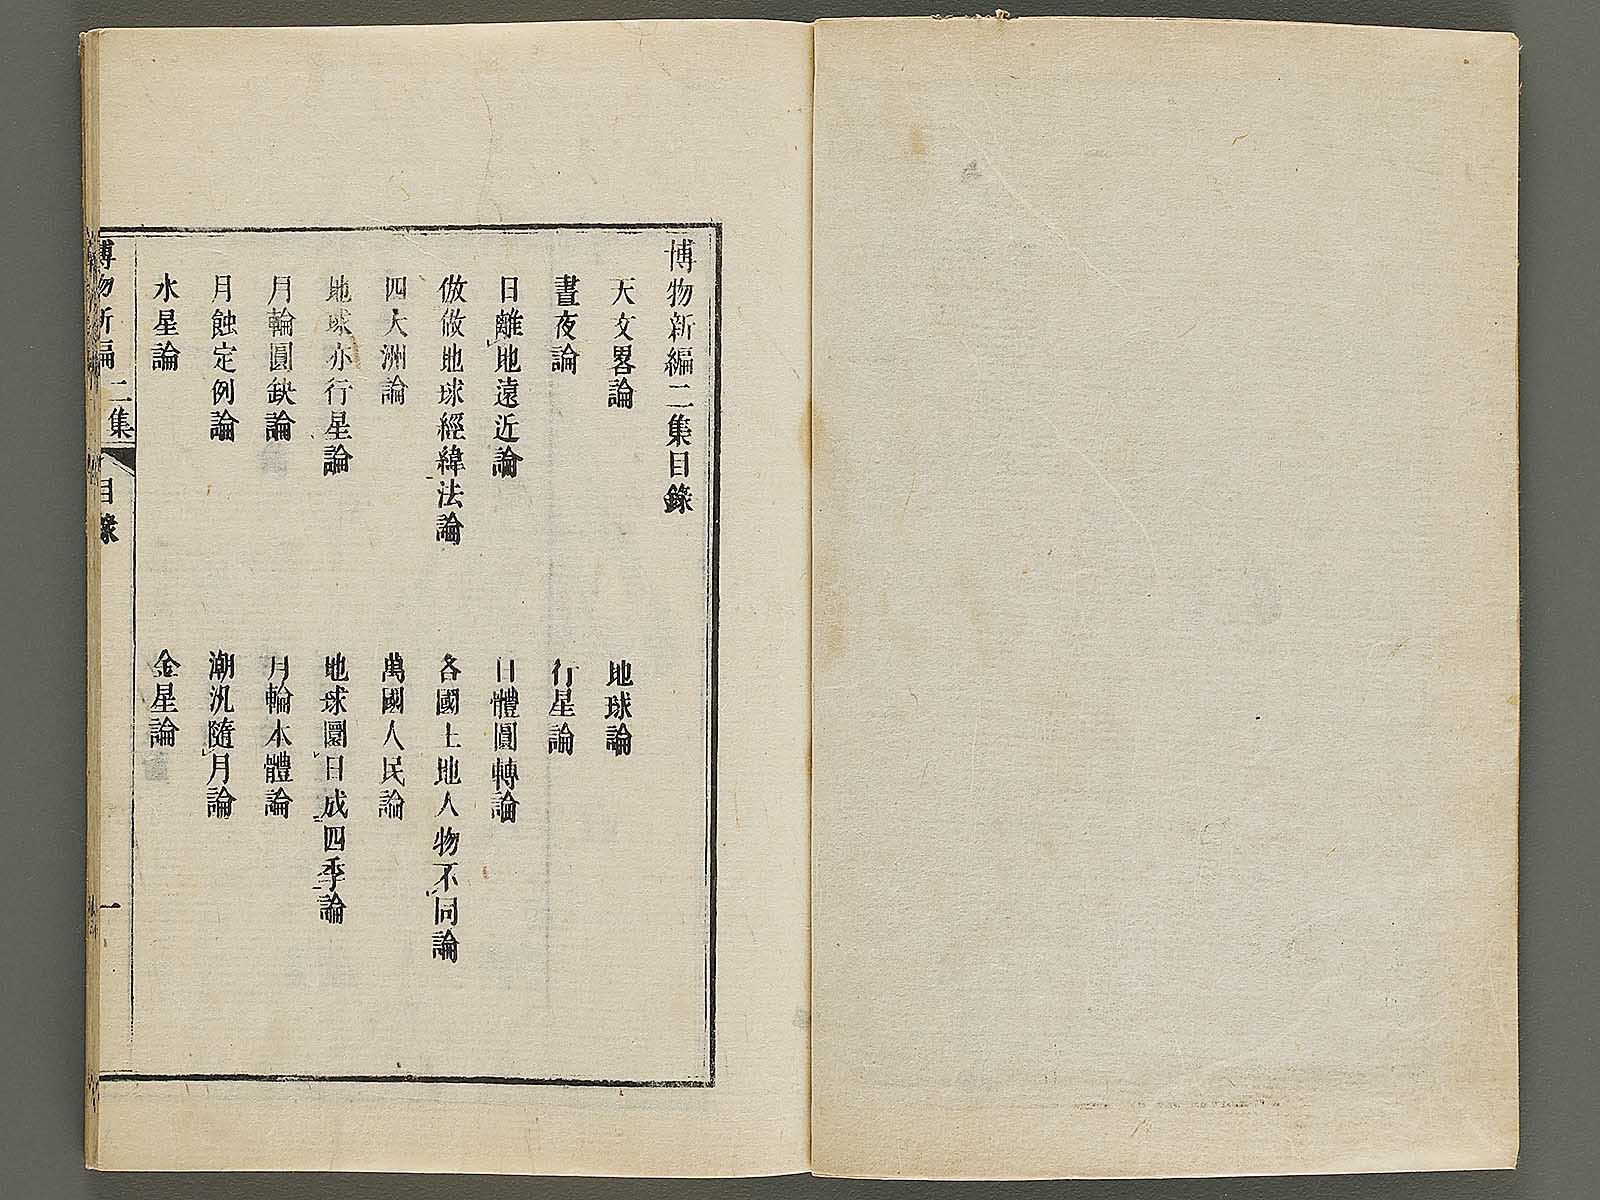 博物新編二集目錄
天文畧論
地球論
晝夜論
行星論
日離地遠近論
日體圓轉論
倣做地球經緯法論
各國土地人物不同論
四大洲論
萬國人民論
地球亦行星論
地球圜日成四季論
月輪圓缺論
月輪本體論
月蝕定例論
潮汛隨月論
水星論
金星論
博物新編二集
目錄
一